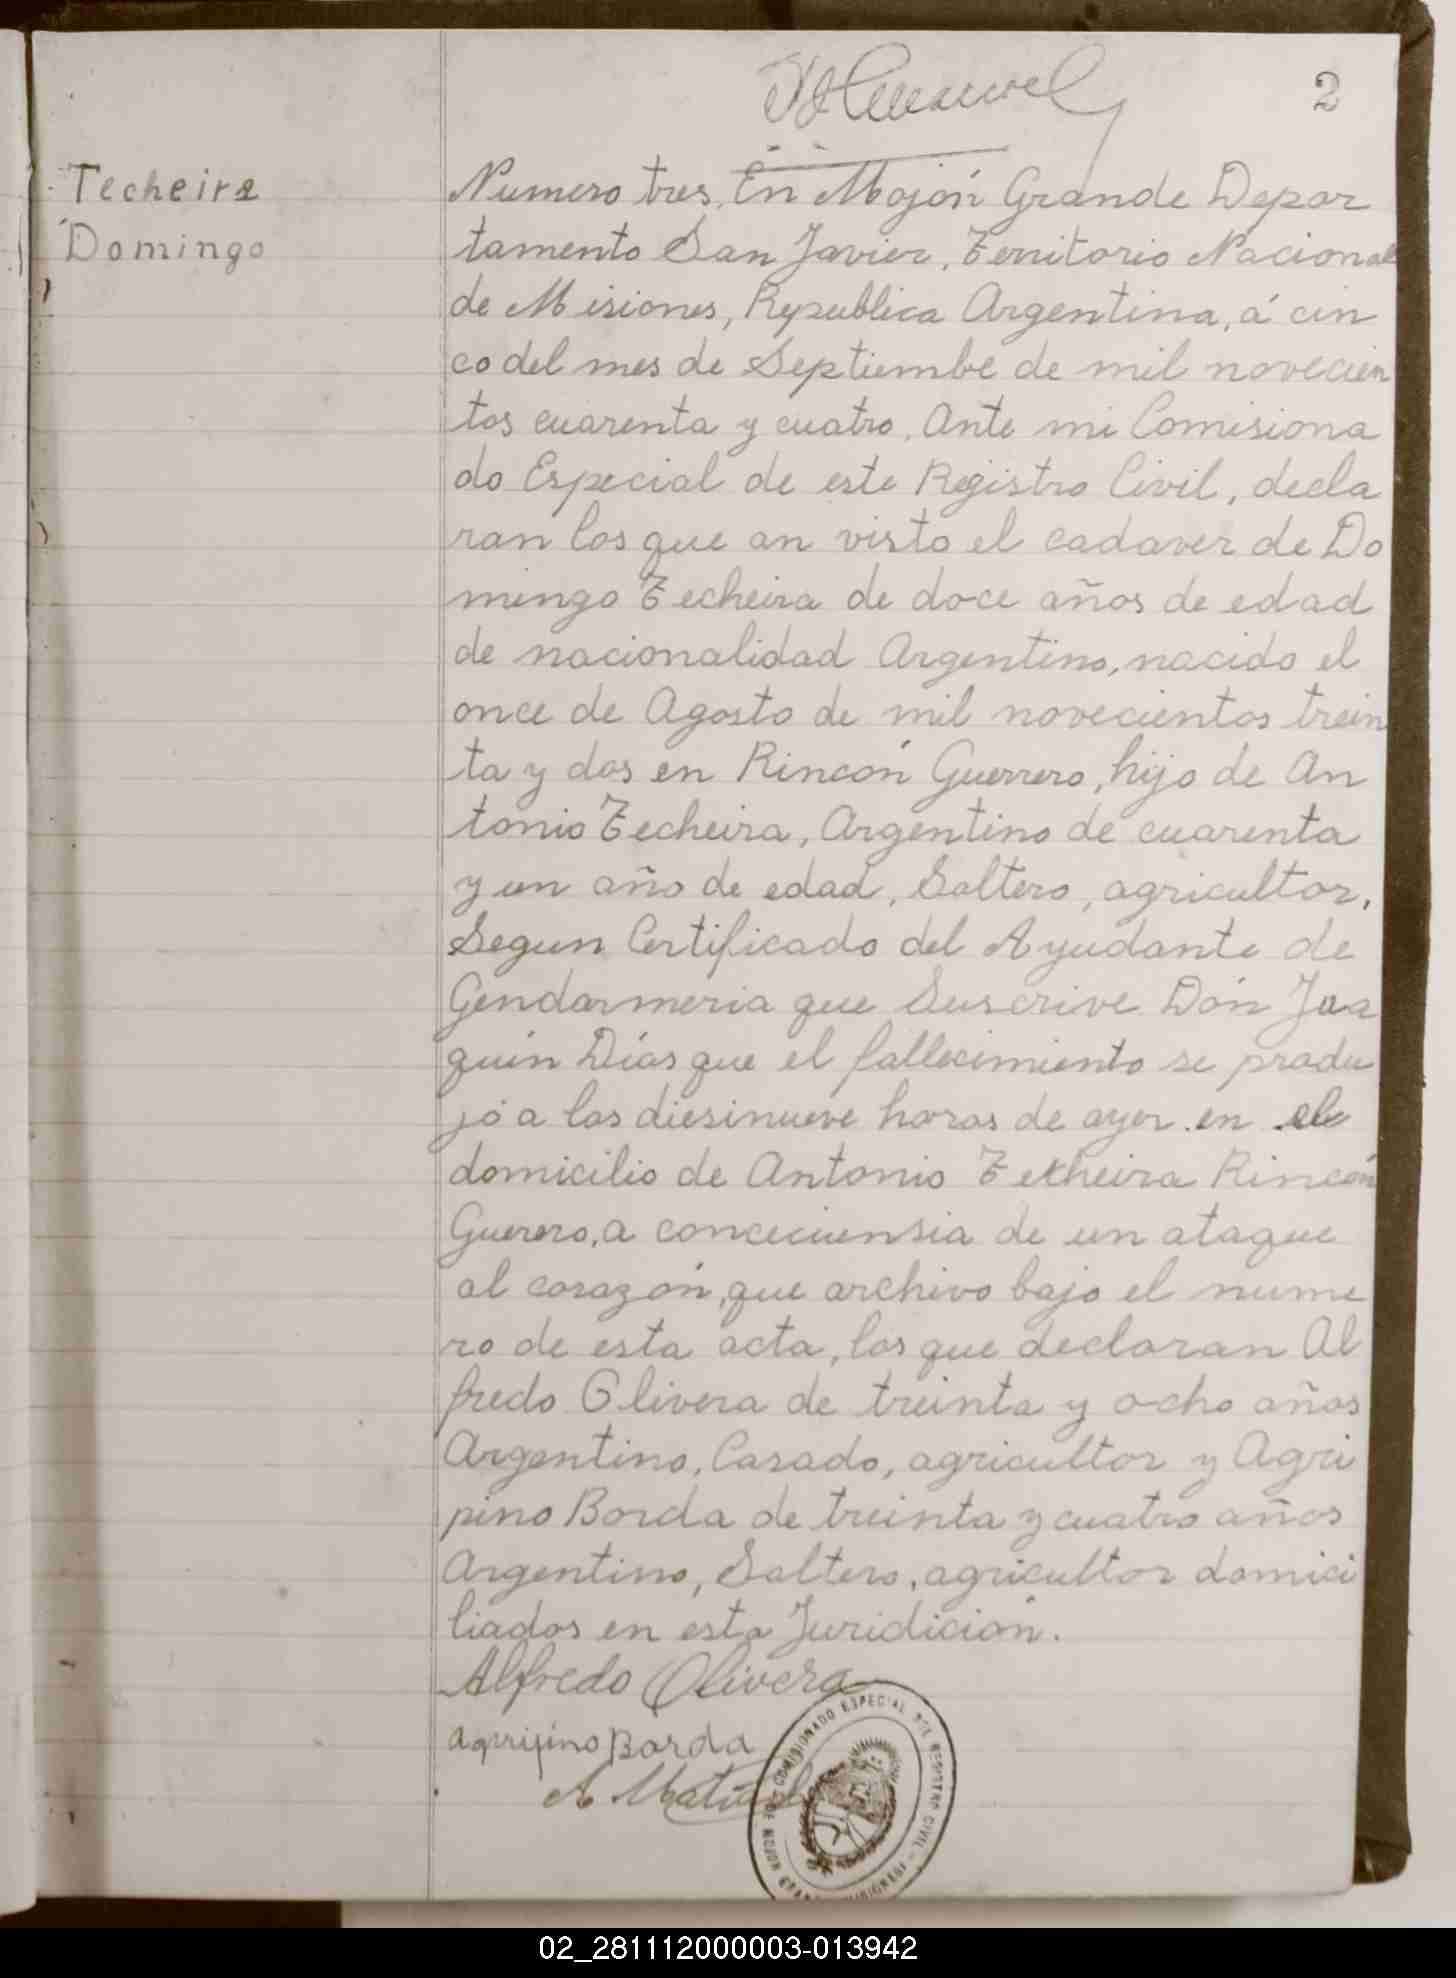 2
Techeira
Domingo
Numero tres. En Mojón Grande Depar
tamento San Javier, Territorio Nacional
de Misiones, Republica Argentina, á cin
co del mes de Septiembe de mil novecien
tos cuarenta y cuatro. Ante mi Comisiona
do Especial de este Registro Civil, decla
ran los que an visto el cadaver de Do
mingo Techeira de doce años de edad
de nacionalidad Argentino, nacido el
once de Agosto de mil novecientos trein
ta y dos en Rincón Guerrero, hijo de An
tonio Techeira, Argentino de cuarenta
y un año de edad, Soltero, agricultor,
Segun Certificado del Ayudante de
Gendarmeria que Suscrive Dón Joa
quin Días que el fallecimiento se produ
jó a las diesinueve horas de ayer en el
domicilio de Antonio Techeira Rincón
Guerero, a conceciuensia de un ataque
al corazón, que archivo bajo el nume
ro de esta acta, los que declaran Al
fredo Olivera de treinta y ocho años
Argentino, Casado, agricultor y Agri
pino Borda de treinta y cuatro años
Argentino, Soltero, agricultor domici
liados en esta Juridición.
Alfredo Olivera
Agripino Borda
COMISIONADO ESPECIAL DEL REGISTRO CIVIL
02_281112000003-013942